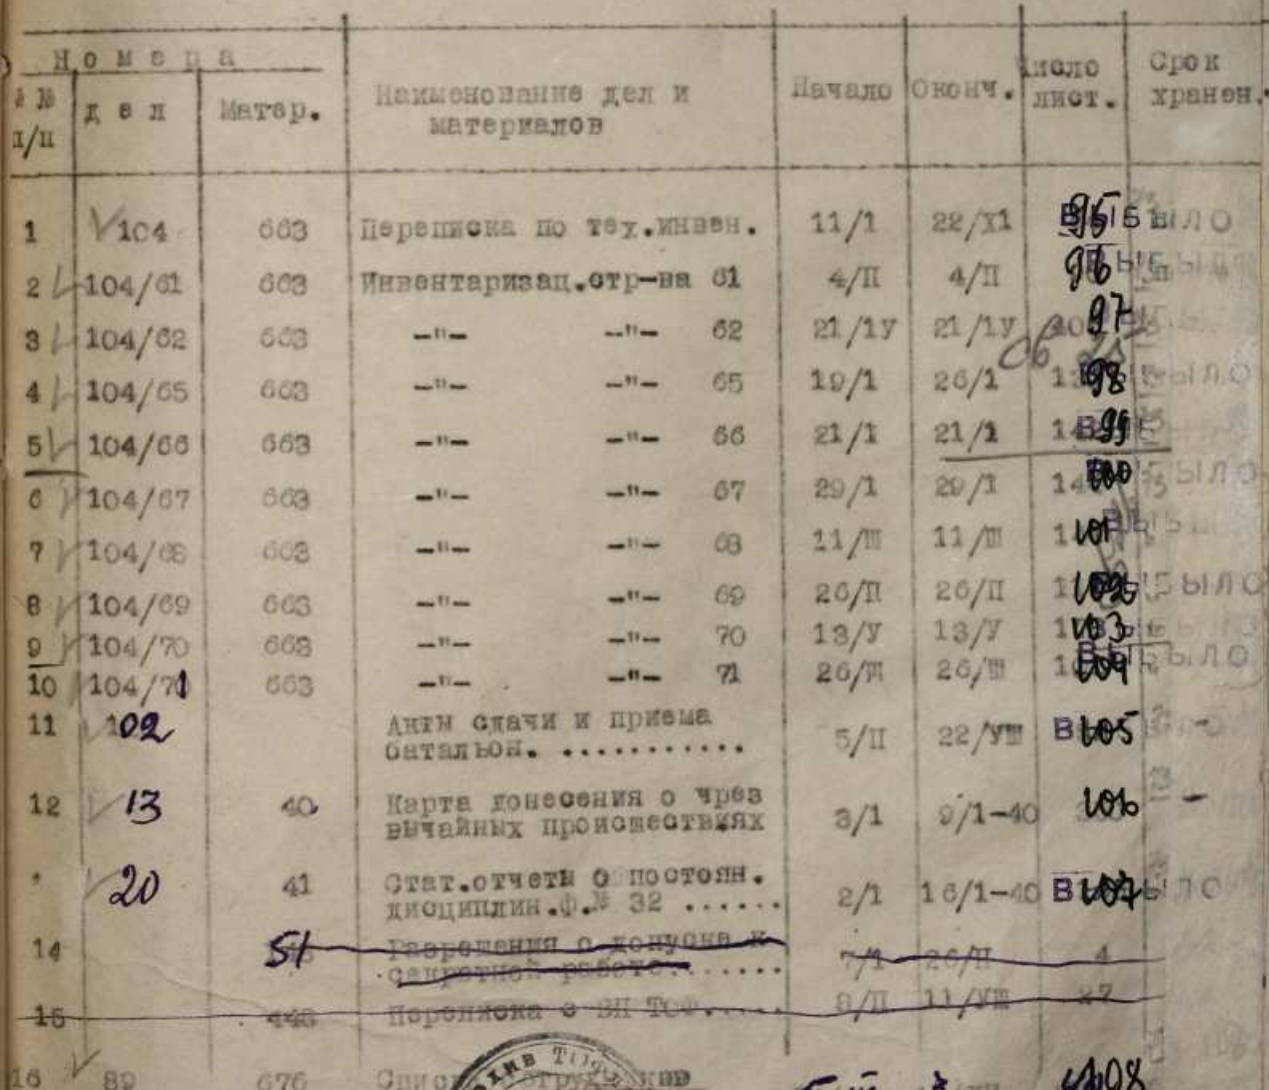 Номера
№№ п/п дел Матер. Наименование дел и материалов Начало Оконч. Число лист. Срок хранен.
1 104 663 Переписка по тех.инвен. 11/1 22/X1 95 ВЫБЫЛО
2 104/61 663 Инвентаризац.стр-ва 61 4/П 4/П 96
3 104/62 663 -"- -"- 62 21/1У 21/1У 97
4 104/65 663 -"- -"- 65 19/1 26/1 98
5 104/66 663 -"- -"- 66 21/1 21/1 99
6 104/67 663 -"- -"- 67 29/1 29/1 100
7 104/68 663 -"- -"- 68 11/Ш 11/Ш 101
8 104/69 663 -"- -"- 69 26/П 26/П 102 ВЫБЫЛО
9 104/70 663 -"- -"- 70 13/У 13/У 103
10 104/71 663 -"- -"- 71 26/Ш 26/Ш 104 ВЫБЫЛО
11 102 Акты сдачи и приема
батальон. ........... 5/П 22/УШ 105
12 13 40 Карта донесения о чрез
вычайных происшествиях 3/1 9/1-40 106
20 41 Стат.отчеты о постоян.
дисциплин.ф.№ 32 ...... 2/1 16/1-40 107 ВЫБЫЛО
14 51 Разрешения о допуска к
секретной работе....... 7/1 26/П 4
15 448 Переписка с ВП ТОФ..... 8/П 11/УШ 27
16 89 676 108